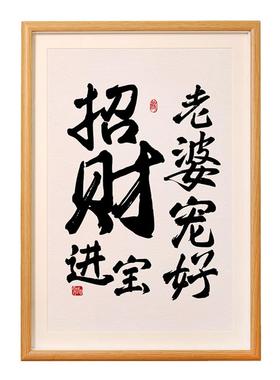 老婆宠好
招财进宝